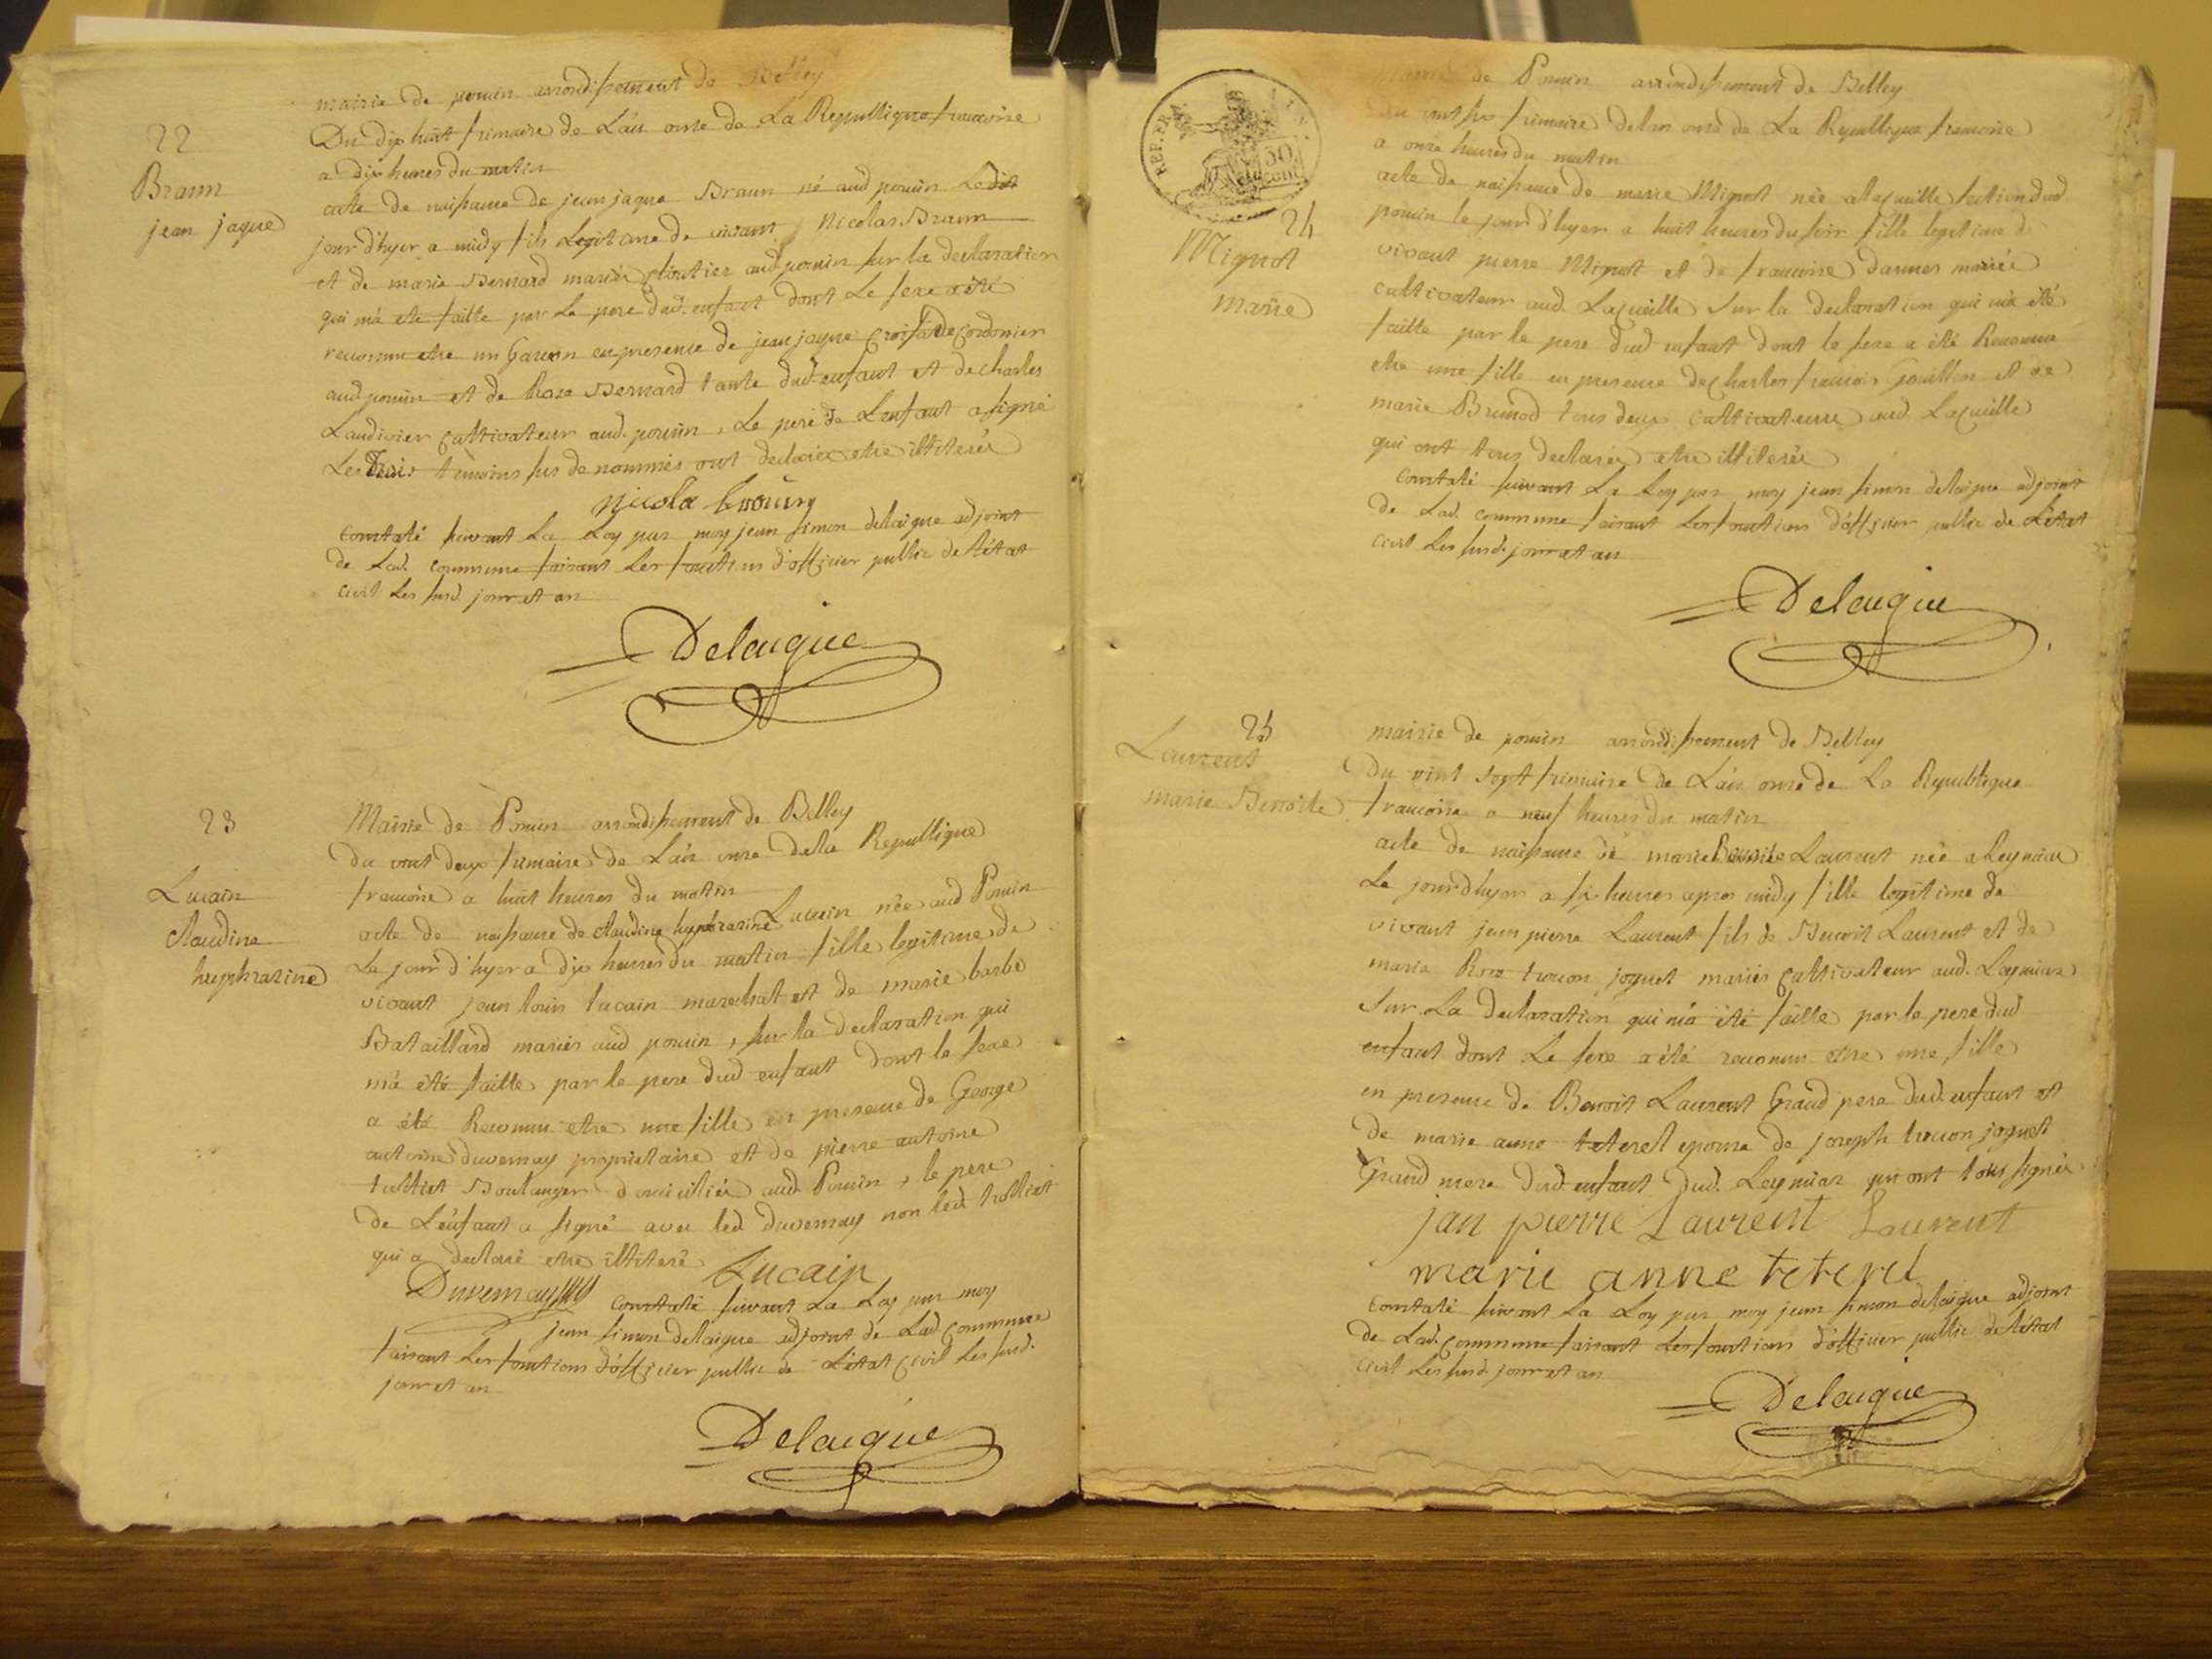 22
Braun
jean jaque
mairie de pouin arrondissement de Belley
Du dix huit frimaire de L'an onze de La Republique francoise
a dix heures du matin
acte de naissance de jean jaque Braun né aud pouin Ledit
jour d'hyer a midy fils Legitime de vivant Nicolas Braun
et de marie Bernard mariés cloutier aud pouin sur la declaration
qui m'a eté faitte par Le pere dud. enfant dont Le sexe a été
reconnu etre un Garcon en presence de jean jaque cordonier
aud pouin et de Roze Bernard tante dud. enfant et de charles
Laudivier cultivateur aud. pouin, Le pere de L'enfant a signé
Les trois temoins sus de nommés ont declaré etre illiterés
nicola
Constaté suivant La Loy par moy jean simon delaigue adjoint
de Lad. commune faisant Les fonctions d'officier public de l'état
civil Les susd. jour et an
Delaigue
23
Lucain
claudine
huphrazine
Mairie de Pouin arrondissement de Belley
du vint deux frimaire de L'an onze de la Republique
francoise a huit heures du matin
acte de naissance de claudine huphrazine Lucain née aud Pouin
Le jour d'hyer a dix heures du matin fille legitime de
vivant jean louis lucain marechal et de marie barbe
Bataillard mariés aud pouin, sur la declaration qui
m'a été faitte par le pere dud enfant dont le sexe
a été Reconnu etre une fille en presence de George
antoine duvernay proprietaire et de pierre antoine
tulliet Boulanger domiciliés aud Pouin, le pere
de L'enfant a signé avec led duvernay non led tulliet
qui a declaré etre illiteré
Duvernay Lucain
Constaté suivant La Loy par moy
jean simon delaigue adjoint de Lad commune
faisant Les fonctions d'officier public de L'état civil Les susd.
jour et an
Delaigue
REP. FRA.
50
cent
24
Mignot
marie
mairie de Pouin arrondissement de Belley
du vint six frimaire de lan onze de La Republique francoise
a onze heures du matin
acte de naissance de marie Mignot née a Lacuille section dud
pouin le jour d'hyer a huit heures du soir fille legitime de
vivant pierre Mignot et de francoise dannes mariés
cultivateur aud. Lacuille sur la declaration qui m'a été
faitte par le pere dud enfant dont le sexe a été Reconnue
etre une fille en presence de charles francois Gouillon et de
marie Brunod tous deux cultivateurs aud. Lacuille
qui ont tous declarés etre illiterés
Constaté suivant La Loy par moy jean simon delaigue adjoint
de Lad. commune faisant Les fonctions d'officier public de L'état
civil Les susd. jour et an
Delaigue
25
Laurent
marie Benoite
mairie de pouin arrondissement de Belley
Du vint sept frimaire de L'an onze de La Republique
francoise a neuf heures du matin
acte de naissance de marie Benoite Laurent née a Leymiar
Le jour d'hyer a six heures apres midy fille legitime de
vivant jean pierre Laurent fils de Benoit Laurent et de
marie Roze truon joquet mariés cultivateur aud. Leymiar
sur La declaration qui m'a été faitte par le pere dud
enfant dont Le sexe a été reconnu etre une fille
en presence de Benoit Laurent Grand pere dud. enfant et
de marie anne teteret epouse de joseph truon joquet
Grand mere dud. enfant dud. Leymiar qui ont tous signés
jan pierre Laurent Laurent
marie anne teteret
Constaté suivant La Loy par moy jean simon delaigue adjoint
de Lad. commune faisant Les fonctions d'officier public de l'état
civil Les susd. jour et an
Delaigue